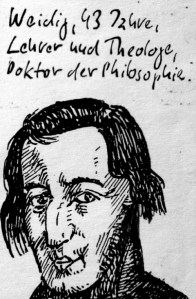 Weidig, 43 Jahre,
Lehrer und Theologe,
Doktor der Philosophie.